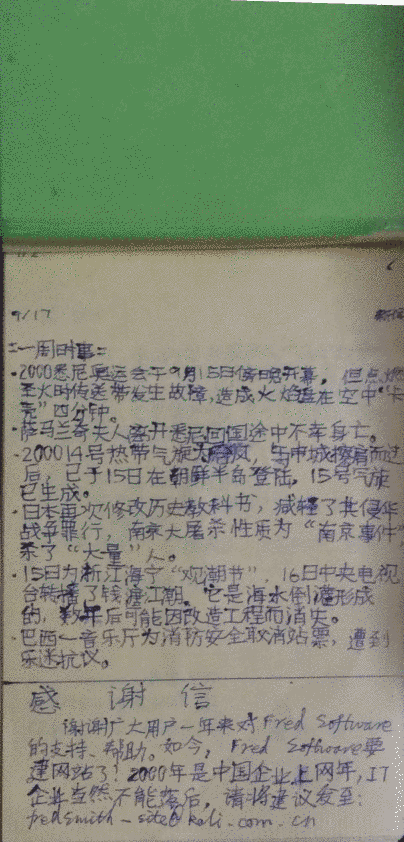 9/17
一周时事:
·2000悉尼奥运会于9月15日傍晚开幕，但点燃
圣火时传送带发生故障，造成火焰盘在空中“卡
壳”四分钟。
·萨马兰奇夫人离开悉尼回国途中不幸身亡。
·200014号热带气旋为 ，与申城擦肩而过
后，已于15日在朝鲜半岛登陆，15号气旋
已生成。
·日本再次修改历史教科书，减轻了其侵华
战争罪行，南京大屠杀性质为“南京事件”
杀了“大量”人。
·15日为浙江海宁“观潮节”，16日中央电视
台转播了钱塘江潮。它是海水倒灌形成
的，数年后可能因改造工程而消失。
·巴西一音乐厅为消防安全取消站票，遭到
乐迷抗议。
感 谢 信
谢谢广大用户一年来对Fred Software
的支持、帮助。如今，Fred Software要
建网站了！2000年是中国企业上网年，IT
企业当然不能落后，请将建议发至：
fredsmith-site@kali.com.cn